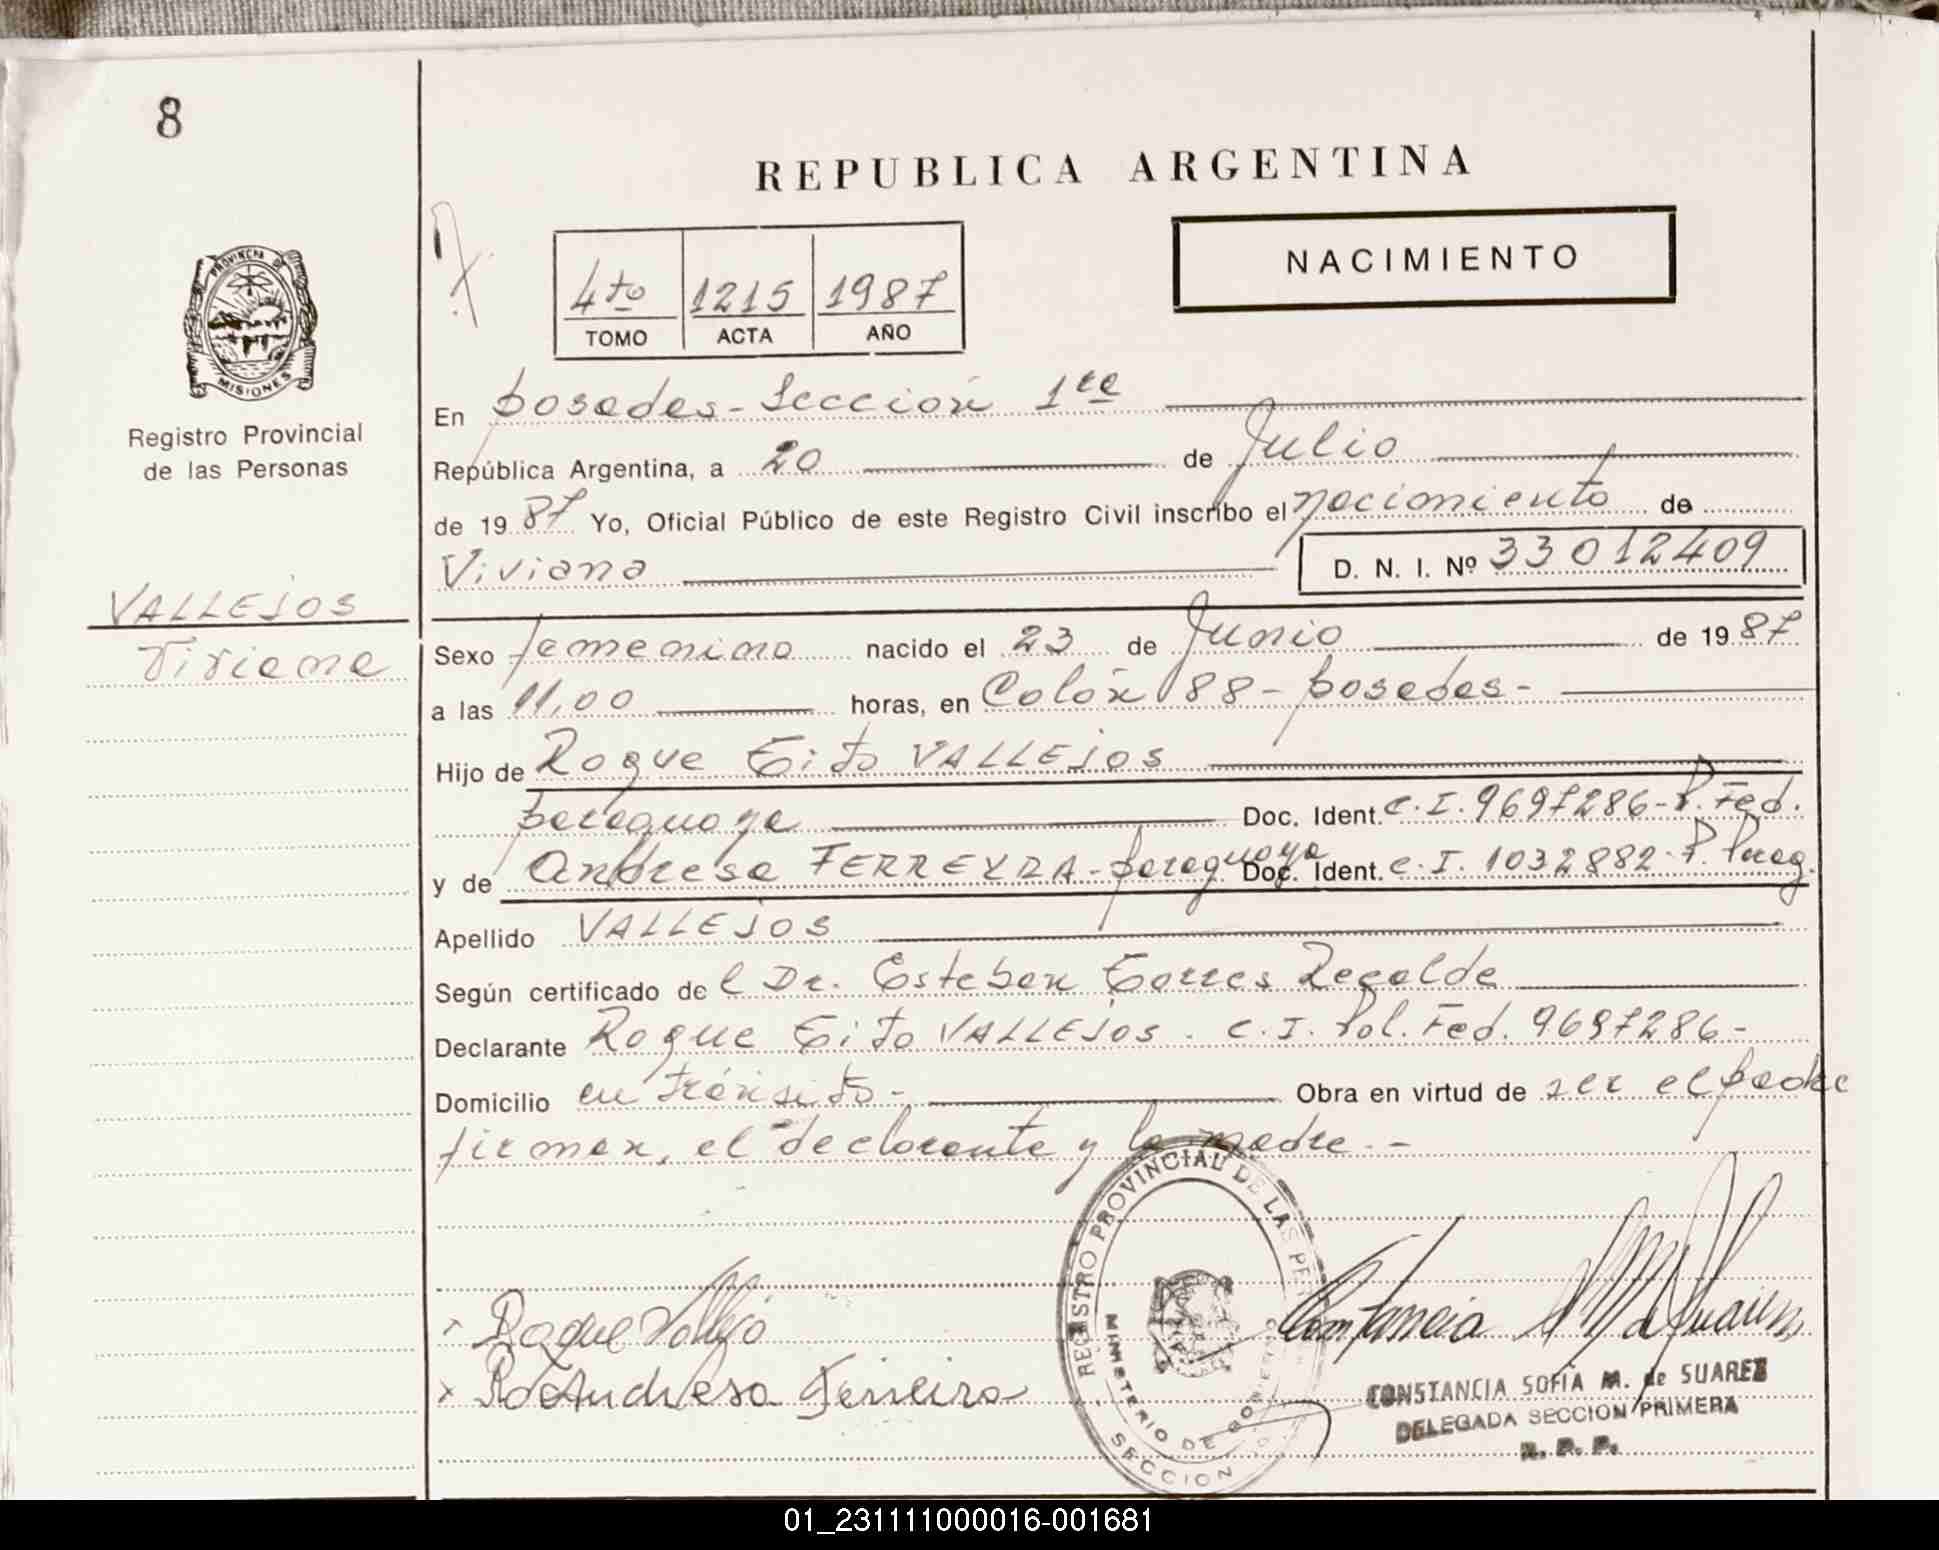 8
REPUBLICA ARGENTINA
NACIMIENTO
4to 1215 1987
TOMO ACTA AÑO
PROVINCIA DE MISIONES
Registro Provincial
de las Personas
En Posadas - Sección 1ra
República Argentina, a 20 de Julio
de 1987 Yo, Oficial Público de este Registro Civil inscribo el nacimiento de
Viviana D. N. I. Nº 33012409
VALLEJOS
Viviana
Sexo femenino nacido el 23 de Junio de 1987
a las 11,00 horas, en Colón 88 - Posadas -
Hijo de Roque Tito VALLEJOS
paraguaya Doc. Ident. C. I. 9697286 - P. Fed.
y de Andresa FERREYRA - paraguaya Doc. Ident. C. I. 1032882 - P. Parag.
Apellido VALLEJOS
Según certificado de l Dr. Esteban Torres Recalde
Declarante Roque Tito VALLEJOS - C. I. Pol. Fed. 9697286 -
Domicilio en tránsito - Obra en virtud de ser el padre
firman, el declarante y la madre. -
REGISTRO PROVINCIAL DE LAS PER
MINISTERIO DE GOBIERNO
SECCION
x Roque Vallejo
x Andresa Ferreira
Constancia M de Suarez
CONSTANCIA SOFÍA M. de SUAREZ
DELEGADA SECCION PRIMERA
R. P. P.
01_231111000016-001681